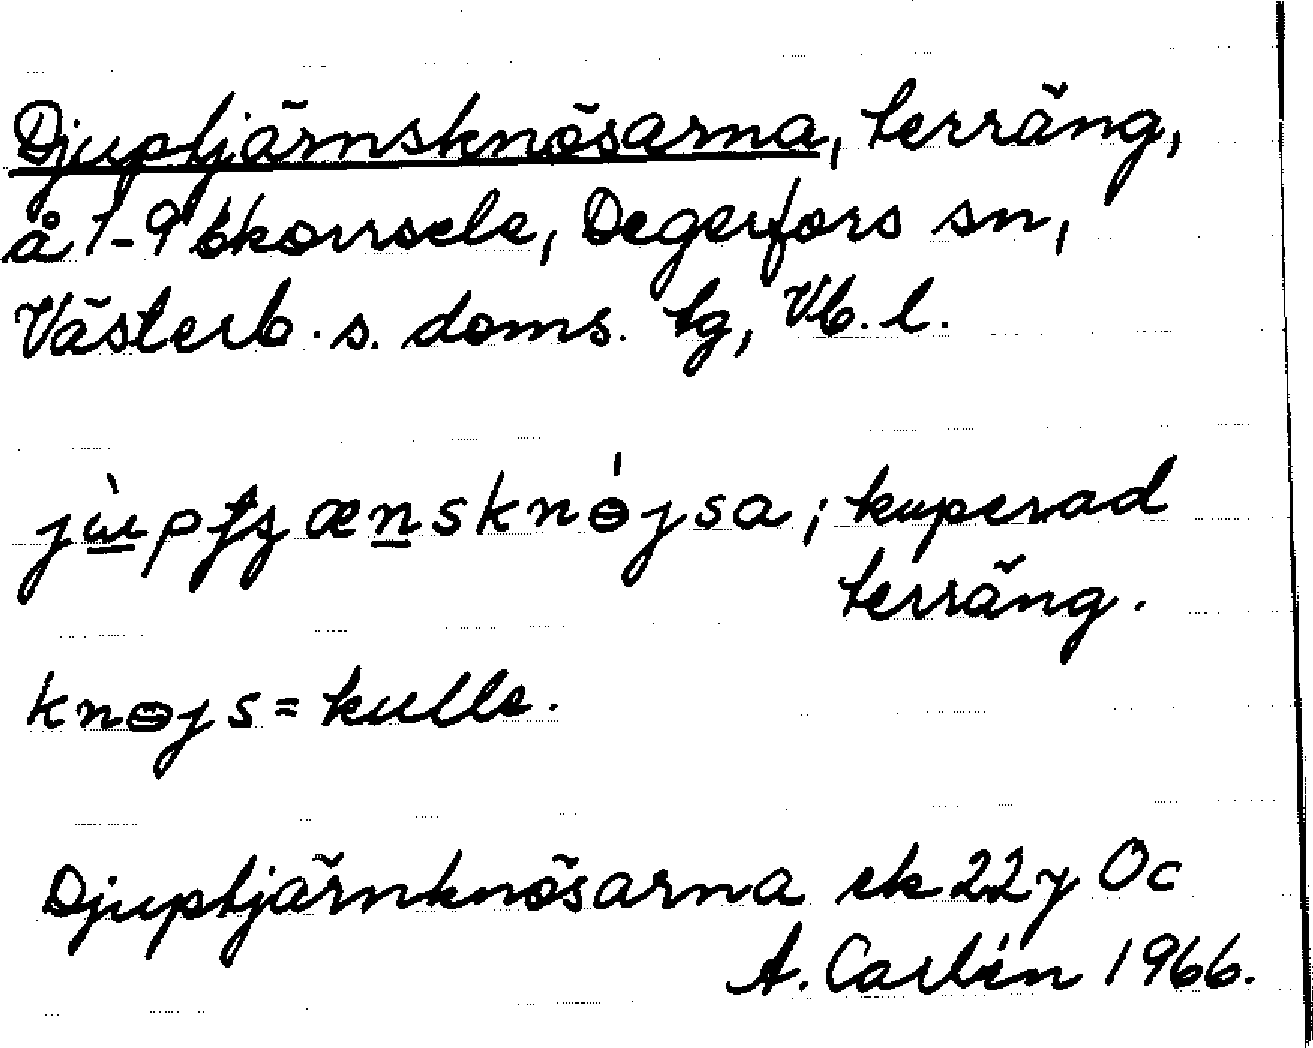 Djuptjärnsknösarna, terräng,
å 1-9 Ekorrsele, Degerfors sn,
Västerb. s. doms. tg, Vb. l.
kuperad
terräng.
= kulle.
Djuptjärnknösarna ek 22 y Oc
A. Carlén 1966.